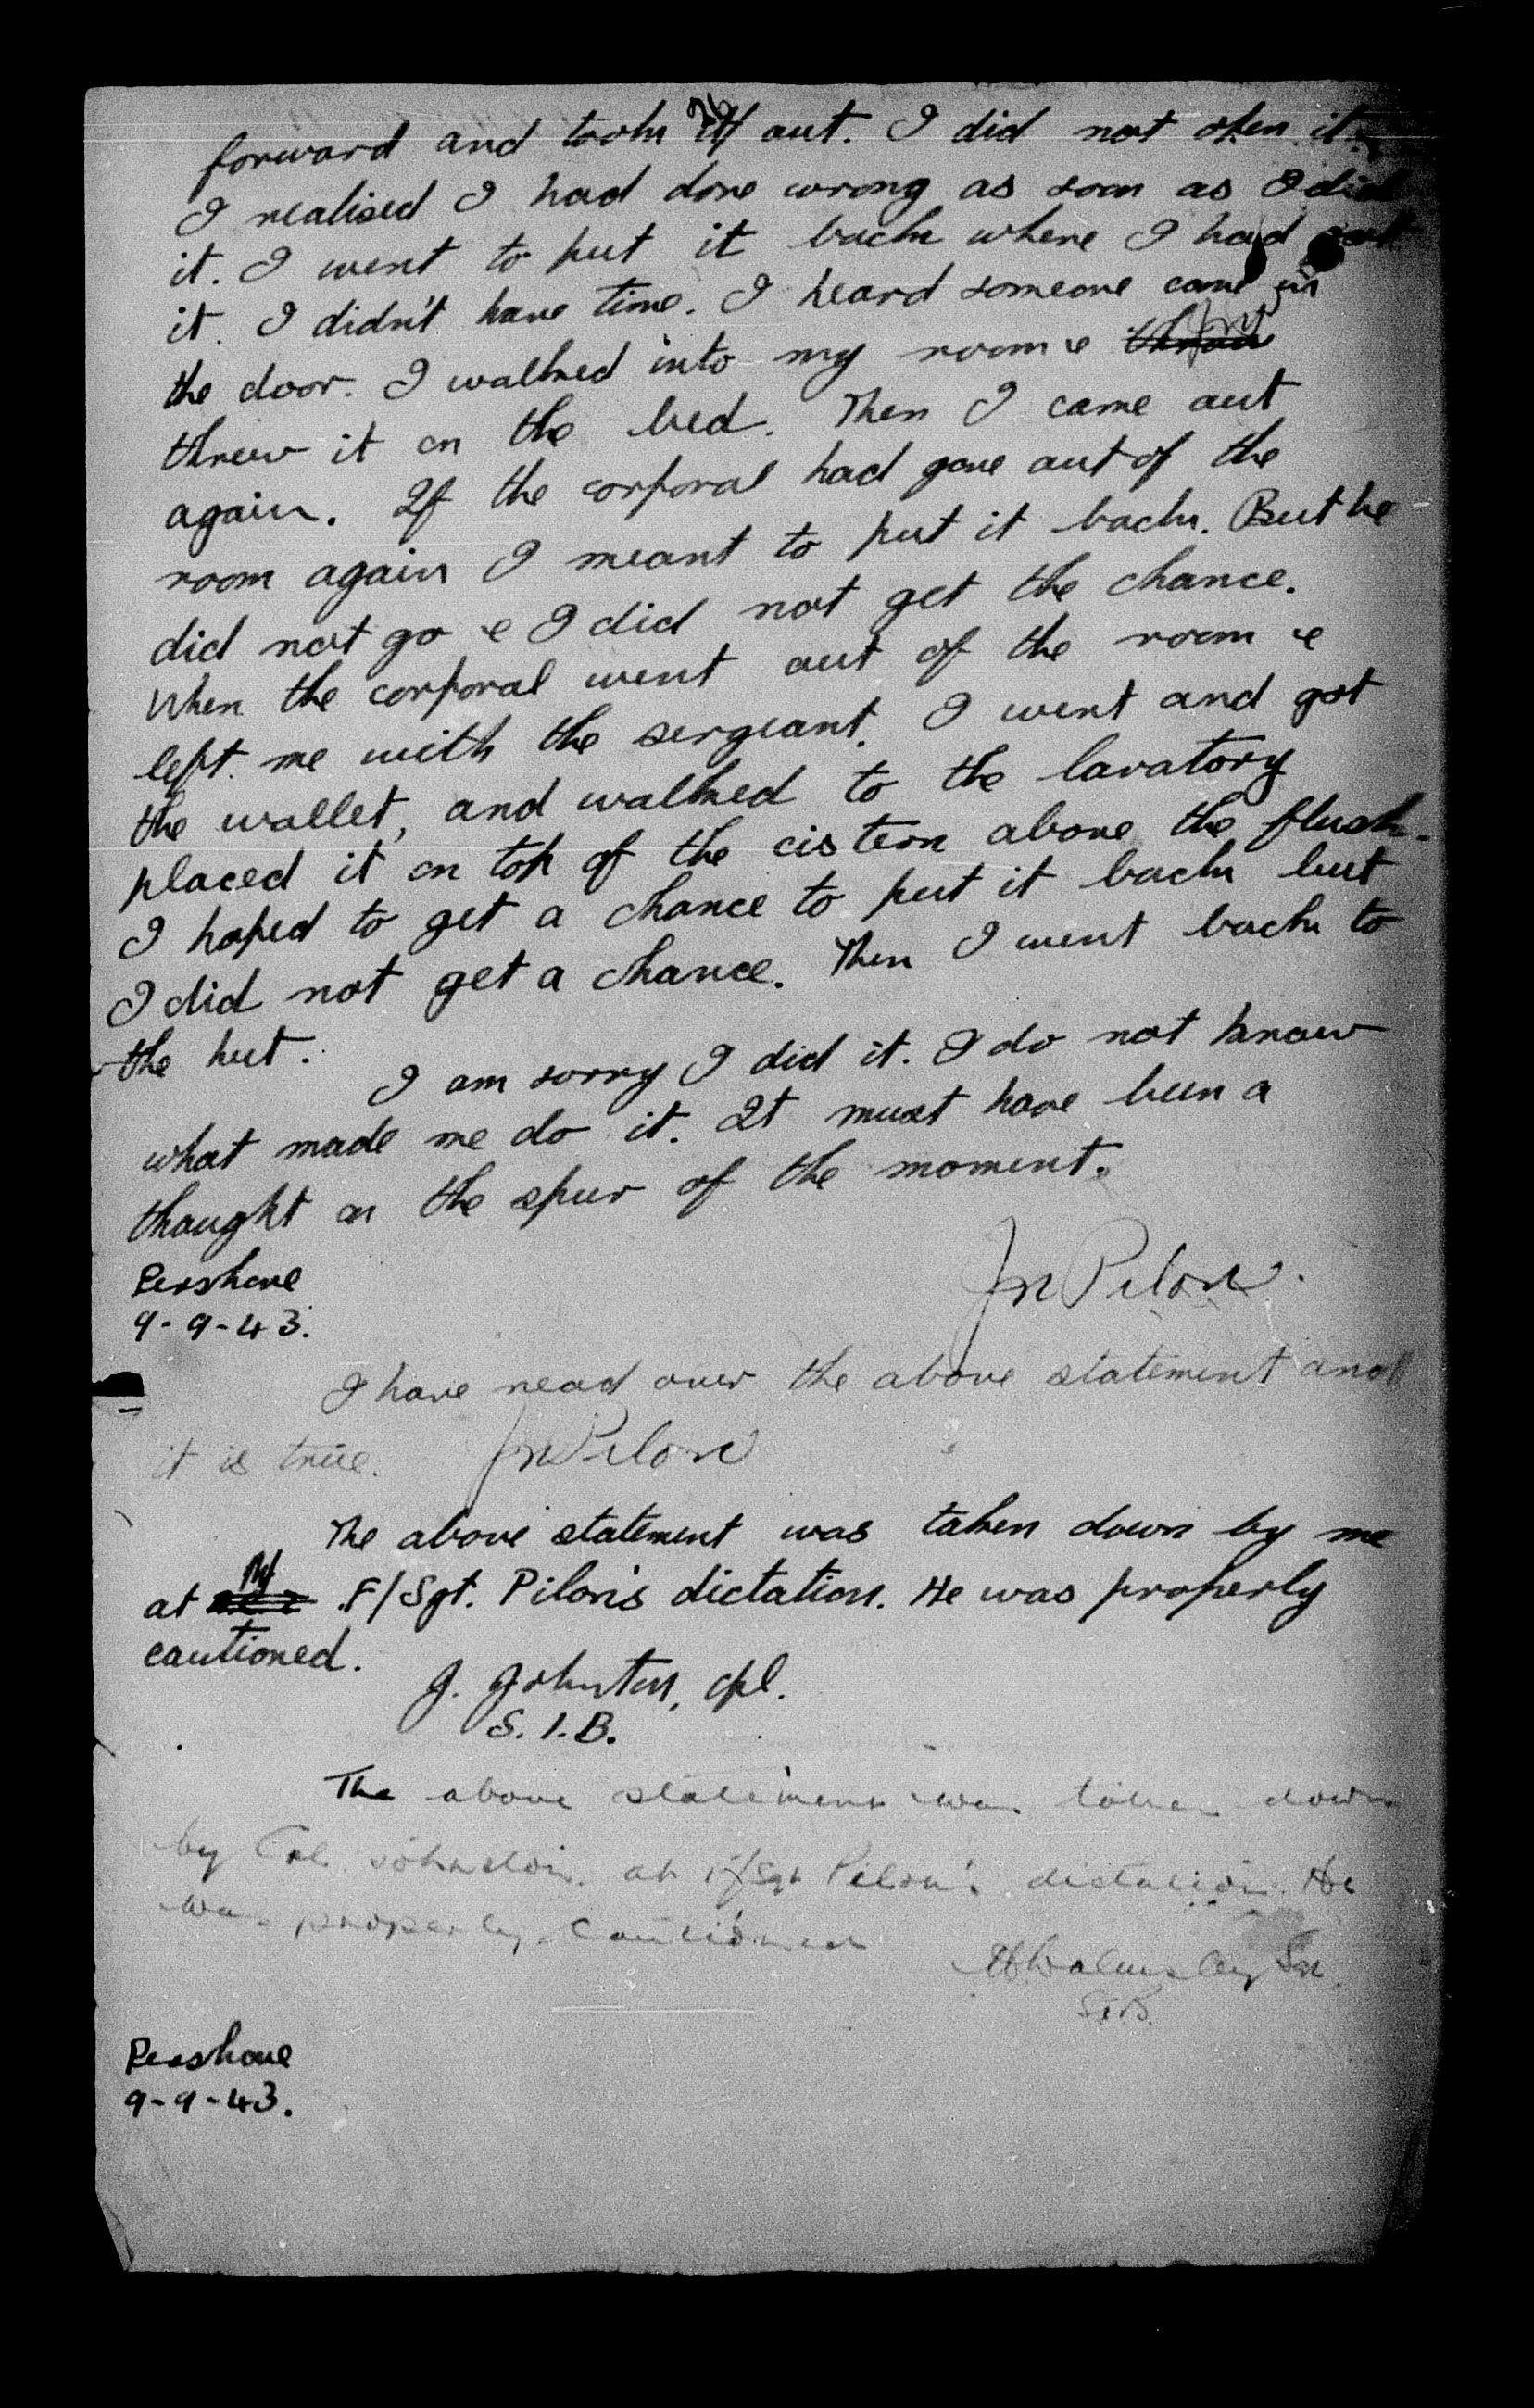 forward and took it out. I did not open it.
I realised I had done wrong as soon as I did
it. I went to put it back where I had got
it. I didn't have time. I heard someone come in
the door. I walked into my room & throw
threw it on the bed. Then I came out
again. If the corporal had gone out of the
room again I meant to put it back. But he
did not go & I did not get the chance.
When the corporal went out of the room &
left me with the sergeant, I went and got
the wallet, and walked to the lavatory
placed it on top of the cistern above the flush.
I hoped to get a chance to put it back but
I did not get a chance. Then I went back to
the hut.
I am sorry I did it. I do not know
what made me do it. It must have been a
thought on the spur of the moment.
Jn Pilon.
Pershore
9-9-43.
I have read over the above statement and
it is true. Jn Pilon
The above statement was taken down by me
at F/Sgt. Pilon's dictation. He was properly
cautioned.
J. Johnston, cpl.
S.I.B.
The above statement was taken down
by Cpl. Johnston at F/Sgt Pilon's dictation. He
was properly cautioned
Walmsley Sgt.
S.I.B.
Pershore
9-9-43.